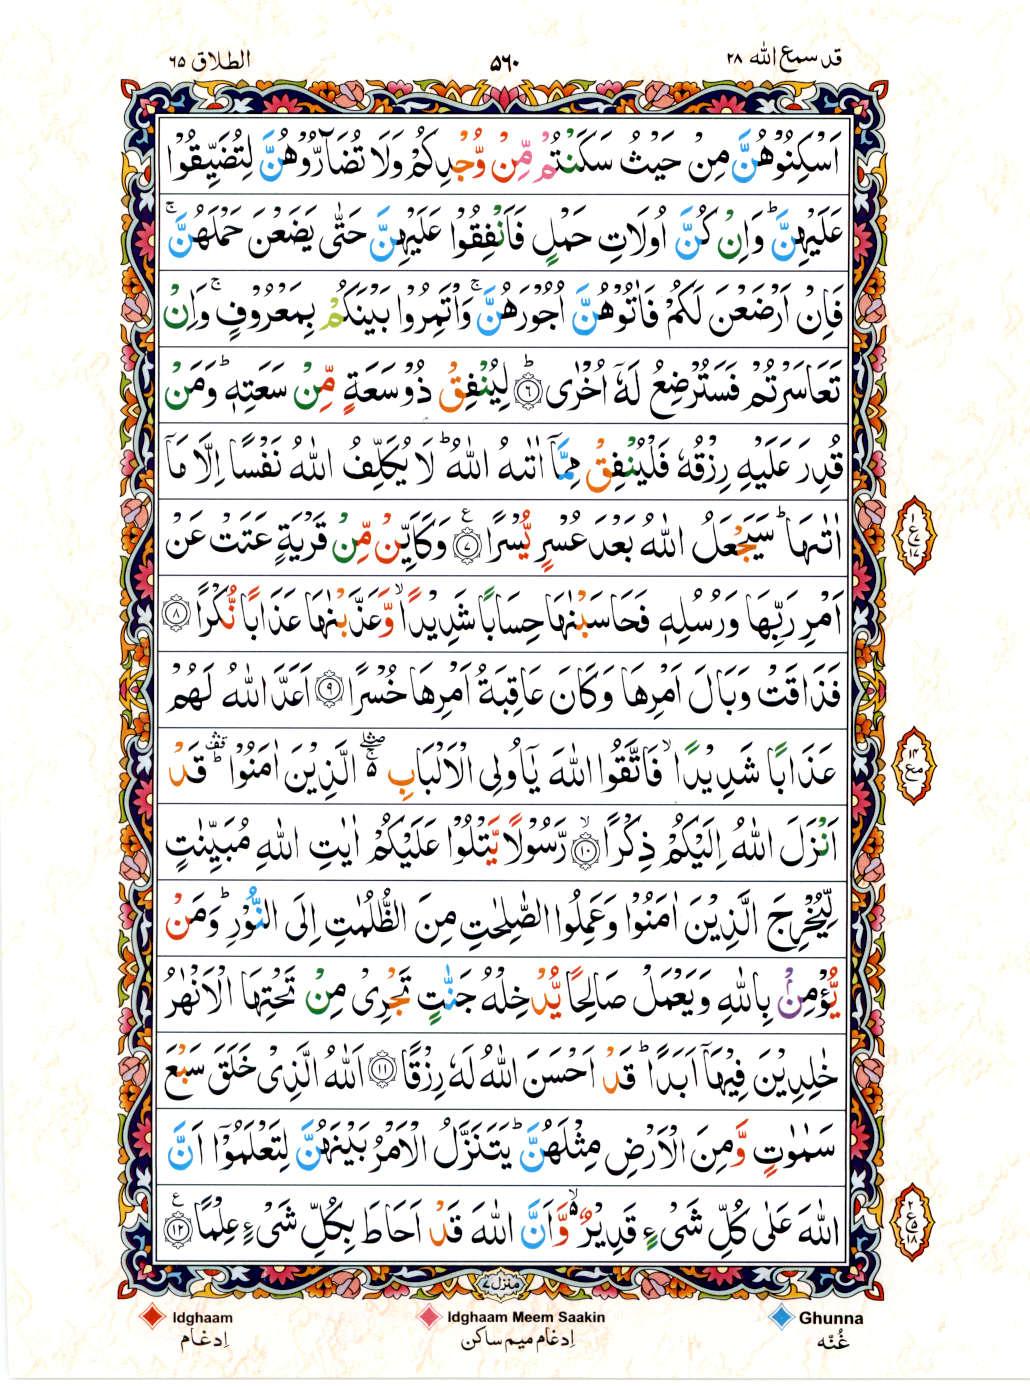 قد سمع الله ٢٨
۵٦٠
الطلاق ٦۵
اَسْكِنُوْهُنَّ مِنْ حَيْثُ سَكَنْتُمْ مِّنْ وُّجْدِكُمْ وَلَا تُضَآرُّوْهُنَّ لِتُضَيِّقُوْا
عَلَيْهِنَّ ؕ وَاِنْ كُنَّ اُولَاتِ حَمْلٍ فَاَنْفِقُوْا عَلَيْهِنَّ حَتّٰى يَضَعْنَ حَمْلَهُنَّ ۚ
فَاِنْ اَرْضَعْنَ لَكُمْ فَاٰتُوْهُنَّ اُجُوْرَهُنَّ ۚ وَاْتَمِرُوْا بَيْنَكُمْ بِمَعْرُوْفٍ ۚ وَاِنْ
تَعَاسَرْتُمْ فَسَتُرْضِعُ لَهٗۤ اُخْرٰى ؕ ﴿٦﴾ لِيُنْفِقْ ذُوْ سَعَةٍ مِّنْ سَعَتِهٖ ؕ وَمَنْ
قُدِرَ عَلَيْهِ رِزْقُهٗ فَلْيُنْفِقْ مِمَّاۤ اٰتٰىهُ اللّٰهُ ؕ لَا يُكَلِّفُ اللّٰهُ نَفْسًا اِلَّا مَاۤ
اٰتٰىهَا ؕ سَيَجْعَلُ اللّٰهُ بَعْدَ عُسْرٍ يُّسْرًا ﴿٧﴾ ع وَكَاَيِّنْ مِّنْ قَرْيَةٍ عَتَتْ عَنْ
اَمْرِ رَبِّهَا وَرُسُلِهٖ فَحَاسَبْنٰهَا حِسَابًا شَدِيْدًا ۙ وَّعَذَّبْنٰهَا عَذَابًا نُّكْرًا ﴿٨﴾
فَذَاقَتْ وَبَالَ اَمْرِهَا وَكَانَ عَاقِبَةُ اَمْرِهَا خُسْرًا ﴿٩﴾ اَعَدَّ اللّٰهُ لَهُمْ
عَذَابًا شَدِيْدًا ۙ فَاتَّقُوا اللّٰهَ يٰۤاُولِى الْاَلْبَابِ ۛۖ۬ الَّذِيْنَ اٰمَنُوْا ۛؕ قَدْ
اَنْزَلَ اللّٰهُ اِلَيْكُمْ ذِكْرًا ۙ ﴿١٠﴾ رَّسُوْلًا يَّتْلُوْا عَلَيْكُمْ اٰيٰتِ اللّٰهِ مُبَيِّنٰتٍ
لِّيُخْرِجَ الَّذِيْنَ اٰمَنُوْا وَعَمِلُوا الصّٰلِحٰتِ مِنَ الظُّلُمٰتِ اِلَى النُّوْرِ ؕ وَمَنْ
يُّؤْمِنْۢ بِاللّٰهِ وَيَعْمَلْ صَالِحًا يُّدْخِلْهُ جَنّٰتٍ تَجْرِىْ مِنْ تَحْتِهَا الْاَنْهٰرُ
خٰلِدِيْنَ فِيْهَاۤ اَبَدًا ؕ قَدْ اَحْسَنَ اللّٰهُ لَهٗ رِزْقًا ﴿١١﴾ اَللّٰهُ الَّذِىْ خَلَقَ سَبْعَ
سَمٰوٰتٍ وَّمِنَ الْاَرْضِ مِثْلَهُنَّ ؕ يَتَنَزَّلُ الْاَمْرُ بَيْنَهُنَّ لِتَعْلَمُوْۤا اَنَّ
اللّٰهَ عَلٰى كُلِّ شَىْءٍ قَدِيْرٌ ۙ وَّاَنَّ اللّٰهَ قَدْ اَحَاطَ بِكُلِّ شَىْءٍ عِلْمًا ﴿١٢﴾ ع
منزل ٧
Ghunna
غُنّہ
Idghaam Meem Saakin
اِدغام میم ساکن
Idghaam
اِدغام